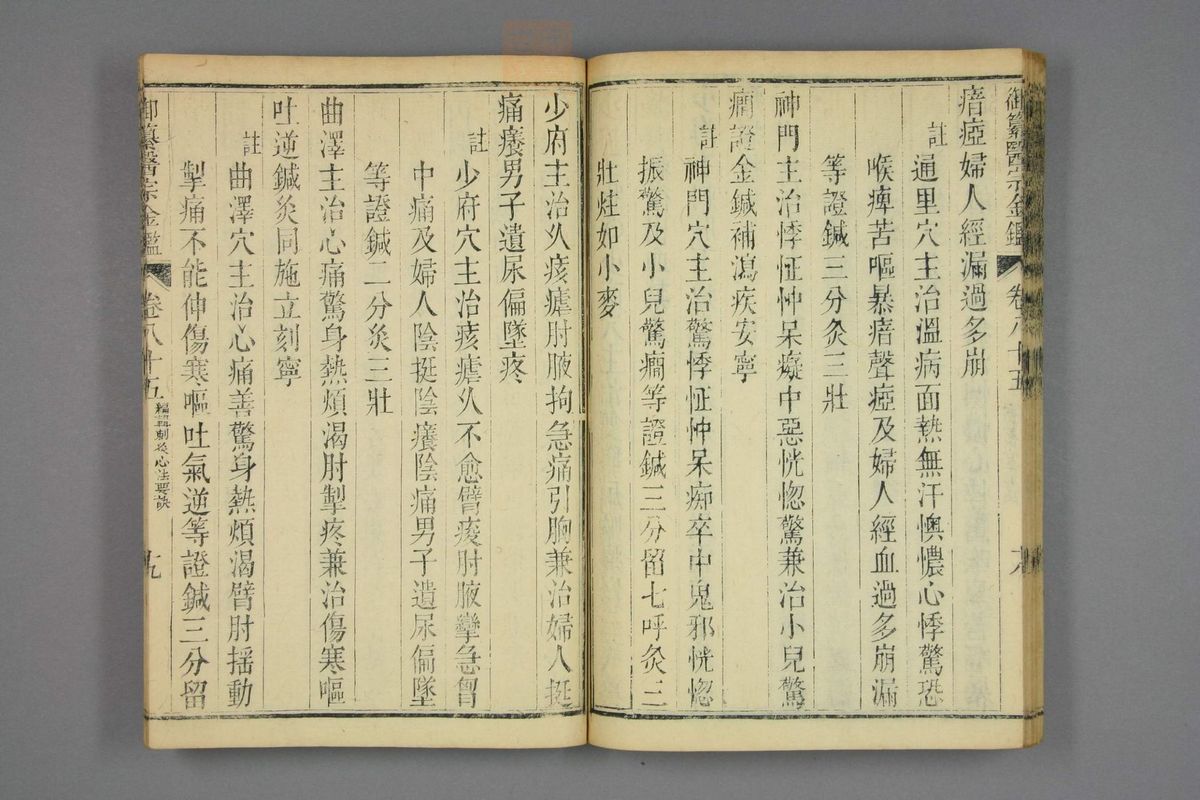 御纂醫宗金鑑 卷八十五
瘖瘂婦人經漏過多崩
註 通里穴主治溫病面熱無汗懊憹心悸驚恐
喉痺苦嘔暴瘖聲瘂及婦人經血過多崩漏
等證鍼三分灸三壯
神門主治悸怔忡呆癡中惡恍惚驚兼治小兒驚
癇證金鍼補瀉疾安寧
註 神門穴主治驚悸怔忡呆痴卒中鬼邪恍惚
振驚及小兒驚癇等證鍼三分留七呼灸三
壯炷如小麥
少府主治久痎瘧肘腋拘急痛引胸兼治婦人挺
痛癢男子遺尿偏墜疼
註 少府穴主治痎瘧久不愈臂痠肘腋攣急胷
中痛及婦人陰挺陰癢陰痛男子遺尿偏墜
等證鍼二分灸三壯
曲澤主治心痛驚身熱煩渴肘掣疼兼治傷寒嘔
吐逆鍼灸同施立刻寧
註 曲澤穴主治心痛善驚身熱煩渴臂肘搖動
掣痛不能伸傷寒嘔吐氣逆等證鍼三分留
御纂醫宗金鑑 卷八十五 編輯刺灸心法要訣 十九